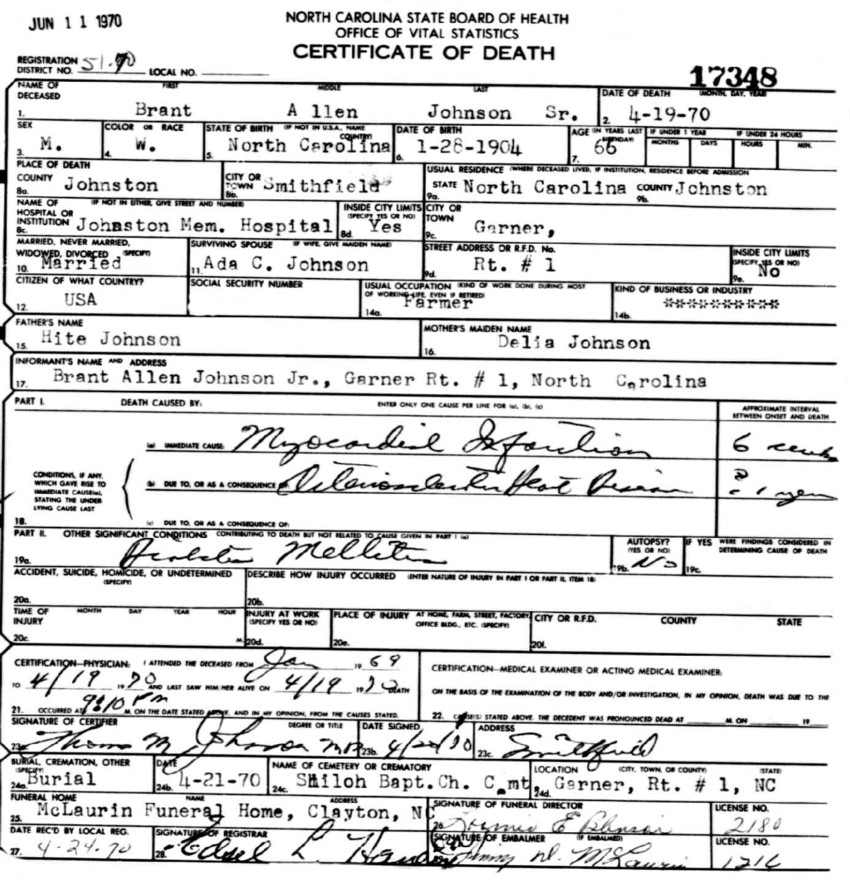 JUN 11 1970
NORTH CAROLINA STATE BOARD OF HEALTH
OFFICE OF VITAL STATISTICS
CERTIFICATE OF DEATH
REGISTRATION DISTRICT NO. 51-70 LOCAL NO.
17348
NAME OF DECEASED FIRST MIDDLE LAST DATE OF DEATH (MONTH, DAY, YEAR)
1. Brant Allen Johnson Sr. 2. 4-19-70
SEX COLOR OR RACE STATE OF BIRTH (IF NOT IN U.S.A., NAME COUNTRY) DATE OF BIRTH AGE (IN YEARS LAST BIRTHDAY) IF UNDER 1 YEAR IF UNDER 24 HOURS
MONTHS DAYS HOURS MIN.
3. M. 4. W. 5. North Carolina 6. 1-28-1904 7. 66
PLACE OF DEATH USUAL RESIDENCE (WHERE DECEASED LIVED, IF INSTITUTION, RESIDENCE BEFORE ADMISSION
8a. COUNTY Johnston 8b. CITY OR TOWN Smithfield 9a. STATE North Carolina 9b. COUNTY Johnston
NAME OF HOSPITAL OR INSTITUTION (IF NOT IN EITHER, GIVE STREET AND NUMBER) INSIDE CITY LIMITS (SPECIFY YES OR NO) CITY OR TOWN
8c. Johnston Mem. Hospital 8d. Yes 9c. Garner,
MARRIED, NEVER MARRIED, WIDOWED, DIVORCED (SPECIFY) SURVIVING SPOUSE (IF WIFE, GIVE MAIDEN NAME) STREET ADDRESS OR R.F.D. No. INSIDE CITY LIMITS (SPECIFY YES OR NO)
10. Married 11. Ada C. Johnson 9d. Rt. # 1 9e. No
CITIZEN OF WHAT COUNTRY? SOCIAL SECURITY NUMBER USUAL OCCUPATION (KIND OF WORK DONE DURING MOST OF WORKING LIFE, EVEN IF RETIRED) KIND OF BUSINESS OR INDUSTRY
12. USA 14a. Farmer 14b. *************
FATHER'S NAME MOTHER'S MAIDEN NAME
15. Hite Johnson 16. Delia Johnson
INFORMANT'S NAME AND ADDRESS
17. Brant Allen Johnson Jr., Garner Rt. # 1, North Carolina
PART I. DEATH CAUSED BY: ENTER ONLY ONE CAUSE PER LINE FOR (a), (b), (c) APPROXIMATE INTERVAL BETWEEN ONSET AND DEATH
(a) IMMEDIATE CAUSE: Myocardial Infarction 6 weeks
CONDITIONS, IF ANY, WHICH GAVE RISE TO IMMEDIATE CAUSE(a), STATING THE UNDERLYING CAUSE LAST
(b) DUE TO, OR AS A CONSEQUENCE OF: Heart Disease ? 1 year
18. (c) DUE TO, OR AS A CONSEQUENCE OF:
PART II. OTHER SIGNIFICANT CONDITIONS CONTRIBUTING TO DEATH BUT NOT RELATED TO CAUSE GIVEN IN PART I (a) AUTOPSY? (YES OR NO) IF YES WERE FINDINGS CONSIDERED IN DETERMINING CAUSE OF DEATH
19a. Mellitus 19b. No 19c.
ACCIDENT, SUICIDE, HOMICIDE, OR UNDETERMINED (SPECIFY) DESCRIBE HOW INJURY OCCURRED (ENTER NATURE OF INJURY IN PART I OR PART II, ITEM 18)
20a. 20b.
TIME OF INJURY MONTH DAY YEAR HOUR INJURY AT WORK (SPECIFY YES OR NO) PLACE OF INJURY AT HOME, FARM, STREET, FACTORY, OFFICE BLDG., ETC. (SPECIFY) CITY OR R.F.D. COUNTY STATE
20c. M. 20d. 20e. 20f.
CERTIFICATION—PHYSICIAN: I ATTENDED THE DECEASED FROM Jan 1969
TO 4/19 1970 AND LAST SAW HIM/HER ALIVE ON 4/19 1970 DEATH
21. OCCURRED AT 9:10 PM M. ON THE DATE STATED ABOVE, AND IN MY OPINION, FROM THE CAUSES STATED.
CERTIFICATION—MEDICAL EXAMINER OR ACTING MEDICAL EXAMINER:
ON THE BASIS OF THE EXAMINATION OF THE BODY AND/OR INVESTIGATION, IN MY OPINION, DEATH WAS DUE TO THE
22. CAUSE(S) STATED ABOVE. THE DECEDENT WAS PRONOUNCED DEAD AT M. ON 19
SIGNATURE OF CERTIFIER DEGREE OR TITLE DATE SIGNED ADDRESS
23a. Johnson MD 23b. 4/20/70 23c. Smithfield
BURIAL, CREMATION, OTHER (SPECIFY) DATE NAME OF CEMETERY OR CREMATORY LOCATION (CITY, TOWN, OR COUNTY) (STATE)
24a. Burial 24b. 4-21-70 24c. Shiloh Bapt. Ch. Cmt 24d. Garner, Rt. # 1, NC
FUNERAL HOME NAME ADDRESS SIGNATURE OF FUNERAL DIRECTOR LICENSE NO.
25. McLaurin Funeral Home, Clayton, NC 26. E Johnson 2180
DATE REC'D BY LOCAL REG. SIGNATURE OF REGISTRAR SIGNATURE OF EMBALMER (IF EMBALMED) LICENSE NO.
27. 4-24-70 28. L. McLaurin 1216